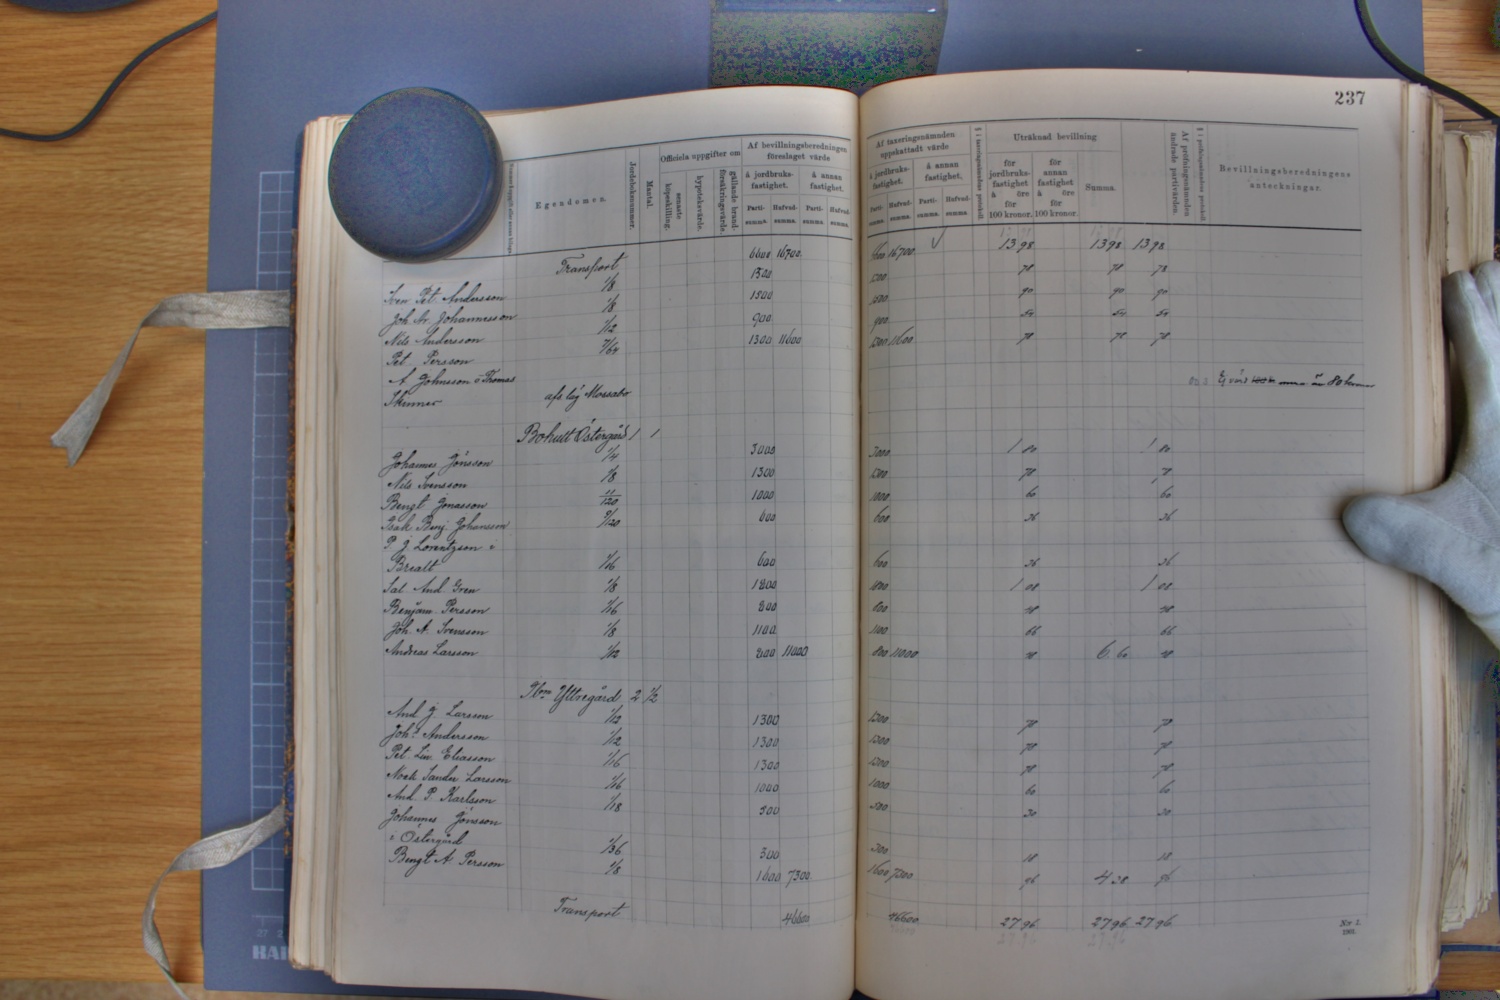 237
Egendomen.
Jordeboksnummer.
Mantal.
Officiela uppgifter om
senaste köpeskilling.
hypoteksvärde.
gällande brandförsäkringsvärde.
Af bevillningsberedningen
föreslaget värde
å jordbruks-
fastighet.
å annan
fastighet.
Parti-
summa.
Hufvud-
summa.
Parti-
summa.
Hufvud-
summa.
Af taxeringsnämnden
uppskattadt värde
å jordbruks-
fastighet.
å annan
fastighet.
Parti-
summa.
Hufvud-
summa.
Parti-
summa.
Hufvud-
summa
Uträknad bevillning
för
jordbruks-
fastighet
å öre
för
100 kronor.
för
annan
fastighet
å öre
för
100 kronor.
Summa.
Af pröfningsnämnden
ändrade partivärden.
Bevillningsberedningens
anteckningar.
Transport 6600 16700 16700 1398 1398 1398
Sven Pet. Andersson 1/8 1300 78 78 78
Joh. Johannesson 1/8 1500 1500 90 90 90
Nils Andersson 1/12 900 900 54 54 54
Pet Persson 7/64 1300 11600 11600 78 78 78
A Johnsson i Thomas
Skinnar afs läg Mossabo 80 kronor
Bohult Östergård 1 1
Johannes Jönsson 1/4 3000 3000 1 80 1 80
Nils Svensson 1/8 1300 1300 78 78
Bengt Jonasson 11/120 1000 1000 60 60
Isak Benj. Johansson 9/120 600 600 36 36
P J Lorentzson i
Brealt 1/16 600 600 36 36
Sal And Gren 1/8 1800 1800 1 08 1 08
Benjam. Persson 1/16 800 800 48 48
Joh. A. Svensson 1/8 1100 1100 66 66
Andreas Larsson 1/12 800 11000 800 11000 48 6 60 48
Yttregård 2 1/2
And J. Larsson 1/12 1300 1300 78 78
Joh.s Andersson 1/12 1300 1300 78 78
Pet. Lin. Eliasson 1/16 1300 1300 78 78
Noak Sander Larsson 1/16 1000 1000 60 60
And. P. Karlsson 1/18 500 500 30 30
Johannes Jönsson
i Östergård 1/36 300 300 18 18
Bengt A Persson 1/8 1600 7300 1600 7300 96 4 38 96
Transport 46600 46600 2796 2796 2796
N:o 1.
1901.
HAI